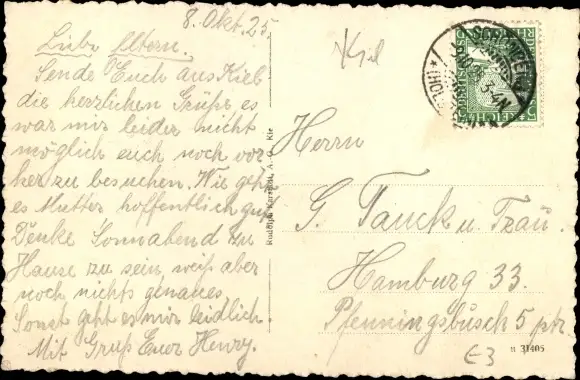 8. Okt. 25
Liebe Eltern.
Sende Euch aus Kiel
die herzlichen Grüße es
war mir leider nicht
möglich euch noch vor
her zu besuchen. Wie geht
es Mutter hoffentlich gut
Denke Sonnabend zu
Hause zu sein, weiß aber
noch nichts genaues
Sonst geht es mir leidlich.
Mit Gruß Euer Henry.
Kiel
Herrn
G. Tanck u. Frau.
Hamburg 33.
Pfenningsbusch 5 ptr
E3
31405